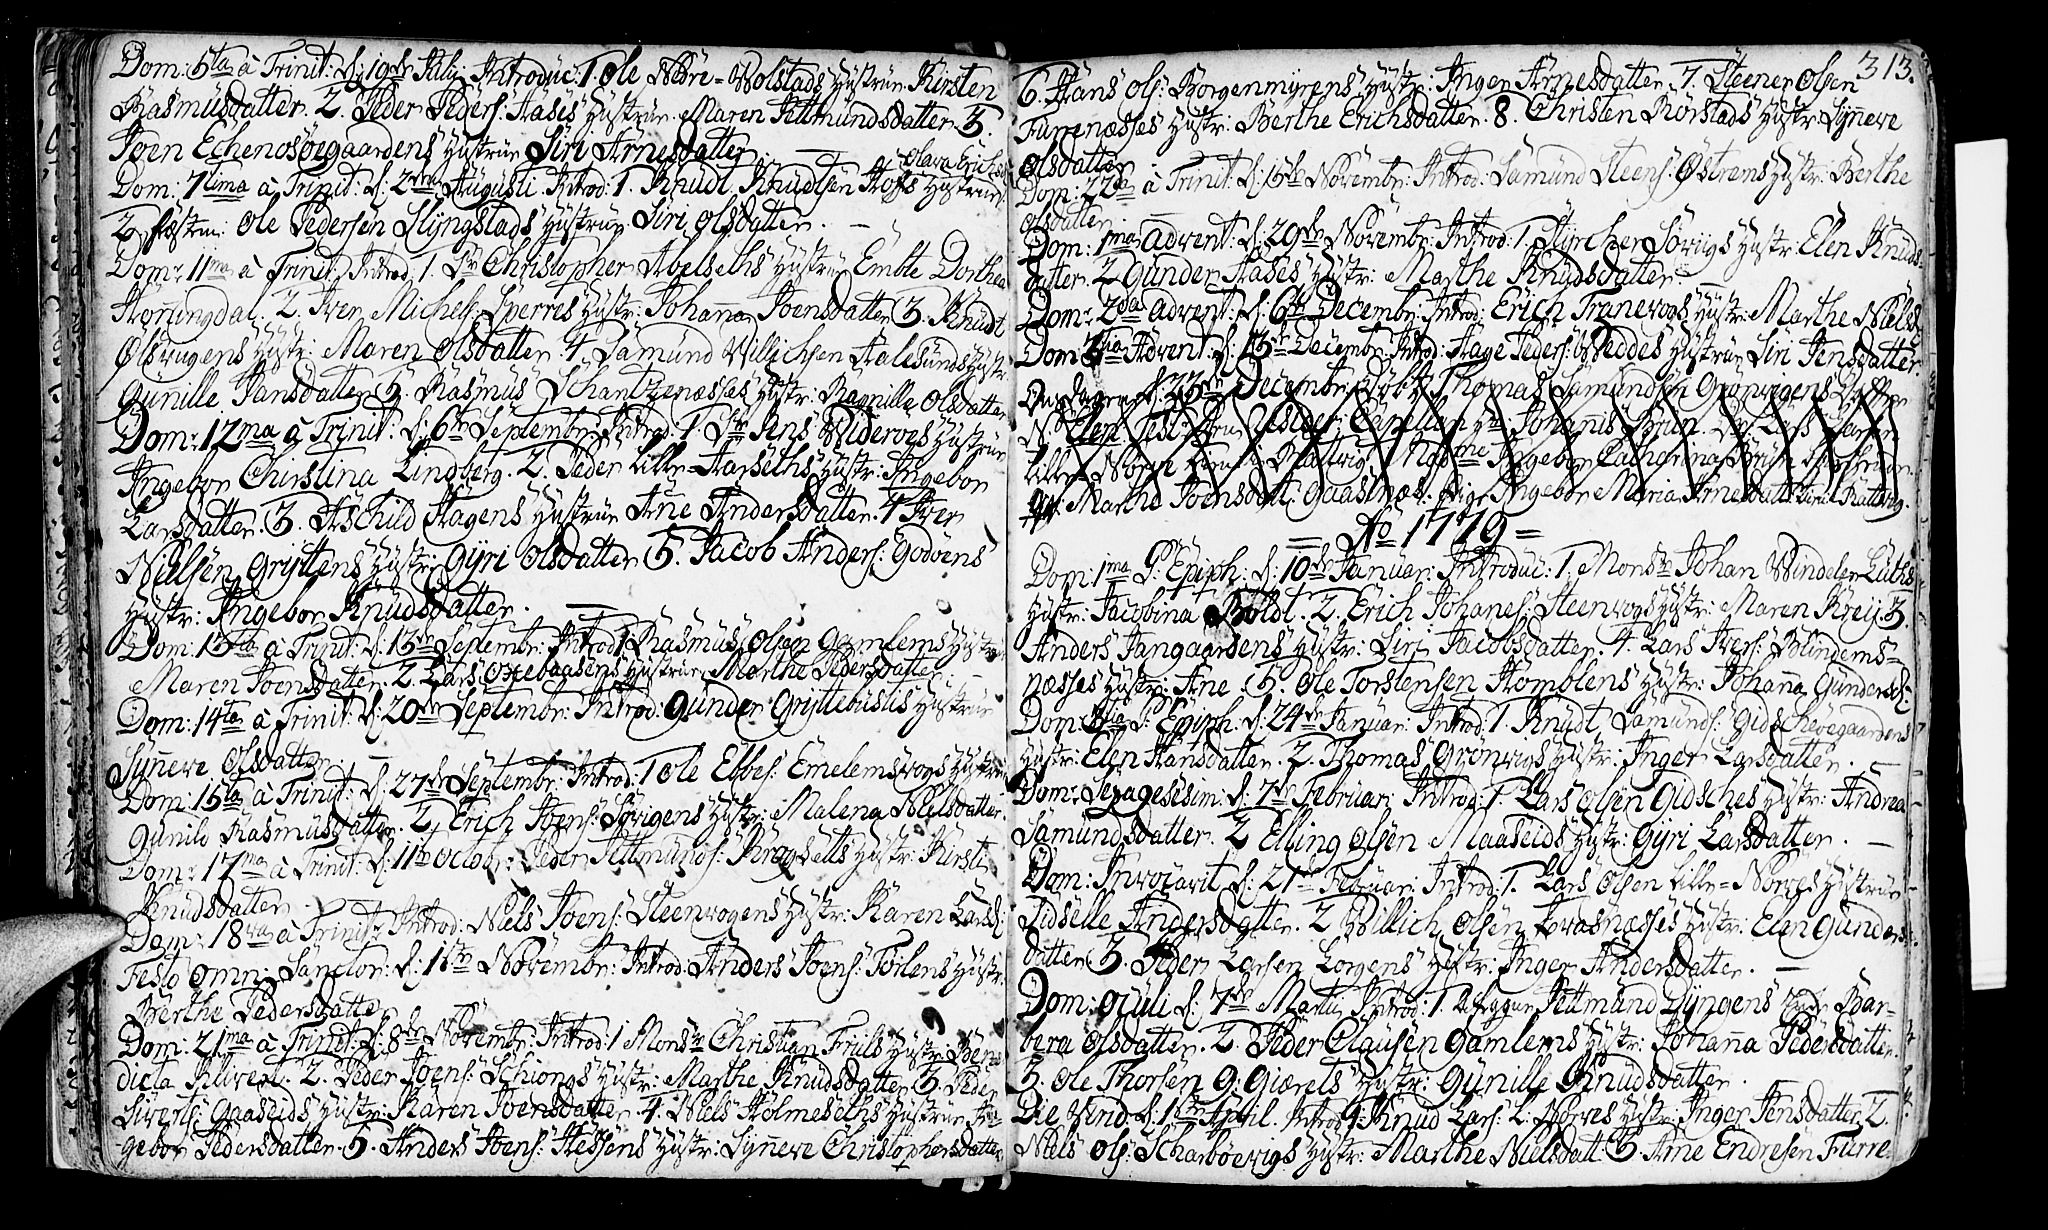 Dom: 5ta à Trinit: d: 19de Julij Introduc: 1. Ole Nedre=Wolstads Hustrue Kirsten
Rasmusdatter. 2. Peder Peders: Aases Hustrue Maren Pettmundsdatter. 3.
Joen Echenosøegaardens Hustrue Siri Arnesdatter. —
Olava Erichsd:
Dom: 7tima à Trinit: d: 2den Augusti Introd: 1. Knudt Knudsen Hofs Hustrue
2 Ole Pedersen Slyngstads Hustrue Siri Olsdatter. —
Dom: 11ma à Trinit: Introd: 1. Sr Christopher Abelseths Hustrue Emble Dorthea
Hønningdal. 2. Iver Michels: Sperres Hustr: Johanna Joensdatter 3. Knudt
Olsvigens Hustr: Maren Olsdatter. 4. Samund Willichsen Aalesunds Hustr:
Gunille Hansdatter 5. Rasmus Schantzenæsses Hustr: Ragnille Olsdatter
Dom: 12ma à Trinit: d: 6te Septembr: Introd: 1. Sr Jens Widervogs Hustrue
Ingebor Christina Lindberg. 2. Peder Lille=Aarseths Hustr: Ingebor
Larsdatter. 3. Aschild Hagens Hustrue Ane Andersdatter. 4 Iver
Nielsen Gryttens Hustr: Gyri Olsdatter 5. Jacob Anders: Godøens
Hustr: Ingebor Knudsdatter. —
Dom: 13ta à Trinit: d: 13de Septembr: Introd 1 Rasmus Olsen Gamlems Hustrue
Maren Joensdatter. 2. Lars Hustrue Marthe Pedersdatter. —
Dom: 14ta à Trinit: d: 20de Septembr: Introd: Gunder Gryttebusts Hustrue
Synneve Olsdatter. —
Dom: 15ta à Trinit: d: 27de Septembr: Introd: 1 Ole Ebbes: Emelemsvogs Hustrue
Gunild Rasmusdatter. 2. Erich Joens: Sørvigens Hustr: Malena Nielsdatter.
Dom: 17ma à Trinit: d: 11te Octobr: Peder Pettmunds: Krogsetts Hustr: Kirsti
Knudsdatter. —
Dom: 18va à Trinit: Introd: Niels Joens: Steenvogens Hustr: Karen Larsd:
Festo Omn: Sanctor: d: 1ste Novembr: Introd: Anders Joens: Tørlens Hustr:
Berthe Pedersdatter
Dom: 21ma à Trinit: d: 8de Novembr: Introd: 1 Monsr Christian Friis Hustr: Bene
dicta 2. Peder Joens: Schiongs Hustr: Marthe Knudsdatter 3. Peder
Siverts: Gaaseids Hustr: Karen Joensdatter. 4. Niels Holmeseths Hustrue In=
gebor Pedersdatter. 5. Anders Joens: Hessens Hustr: Synneve Christophersdatter
313.
6. Hans Ols: Borgenmyrens Hustr: Inger Arnesdatter. 7. Steener Olsen
Furrenæsses Hustr: Berthe Erichsdatter. 8. Christen Rørstads Hustr: Synneve
Olsdatter
Dom: 22da à Trinit: d: 15de Novembr: Introd: Samund Steens: Østrems Hustr: Berthe
Olsdatter. —
Dom: 1ma Advent: d: 29de Novembr: Introd: 1. Styrcher Sørvigs Hustr: Elen Knuds=
datter. 2 Gunder Aases Hustr: Marthe Knudsdatter. —
Dom: 2da Advent: d: 6te Decembr: Introd: Erich Tranevogs Hustr: Marthe Nielsd:
Dom: 3tia Advent: d: 13de Decembr: Introd: Hage Peders: Hustrue Siri Jensdatter.
Onsdagen d: 23de Decembr: Døbt Thomas Samundsen Grønvigens Datter
N: Elen Test: Capellan Hr Johannis Brun. Lars
Lille Nørve Rattvig. Ingebor Catharina
Marthe Joensdatt: Gaasnæs. Pige Ingebor Maria Arnesdatter Rattvig.
= Ao 1779 =
Dom: 1ma P: Epiph: d: 10de Januar: Introduc: 1. Monsr Johan Windeler Lüths
Hustr: Jacobina Boldt. 2. Erich Johanes: Steenvogs Hustr: Maren Kreij. 3.
Anders Hangaardens Hustr: Siri Jacobsdatter. 4. Lars Ivers: Blindems=
næsses Hustr: Ane. 5. Ole Torstensen Homblens Hustr: Johanna Gundersd:
Dom: 3tia P: Epiph: d: 24de Januar: Introd: 1. Knudt Samunds: Gidschevegaardens
Hustr: Elen Hansdatter. 2. Thomas Grønvigs Hustr: Inger Larsdatter. —
Dom: Sexagesisim: d: 7de Februar: Introd: 1. Lars Olsen Gidsches Hustr: Andrea
Samundsdatter. 2 Elling Olsen Maaseids Hustr: Gyri Larsdatter. —
Dom: Invocavit d: 21de Februar: Introd: 1. Lars Olsen Lille=Nørves Hustrue
Sidselle Andersdatter. 2 Willich Olsen Hustr: Elen Gunders:
datter 3. Peder Larsen Lorgens Hustr: Inger Andersdatter. —
Dom: Oculi d: 7de Martij Introd: 1. Pettmund Dyngens Bar=
bera Olsdatter. 2. Peder Clausen Gamlems Hustr: Johanna Pedersdatter.
3. Ole Thorsen G: Giærets Hustr: Gunille Knudsdatter.
Die Virid: d: 1ste April. Introd: 1 Knud Lars: L: Nørves Hustr: Inger Jensdatter. 2.
Niels Ols: Scharbøevigs Hustr: Marthe Nielsdatt 3. Arne Endresen Furre=